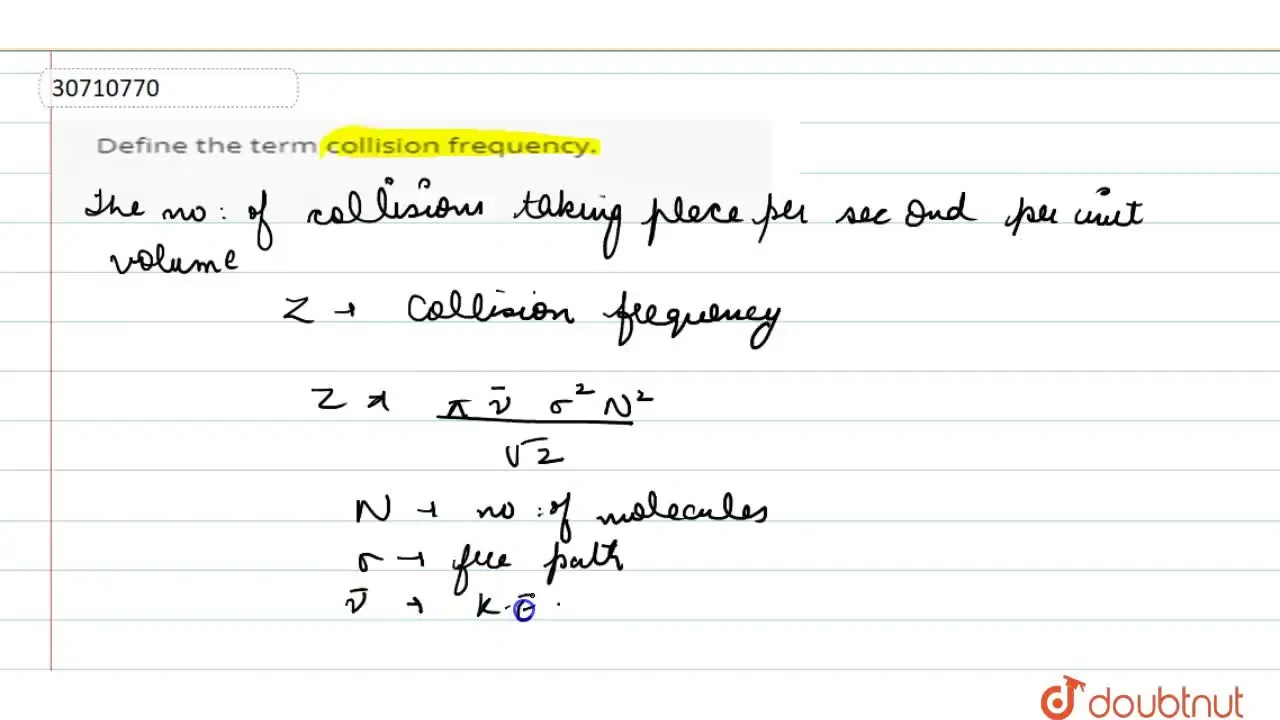 30710770
Define the term collision frequency.
The no: of collisions taking place per second per unit
volume
Z → Collision frequency
Z = π v̄ σ² N²
√2
N → no: of molecules
σ → free path
v̄ → K.E
doubtnut